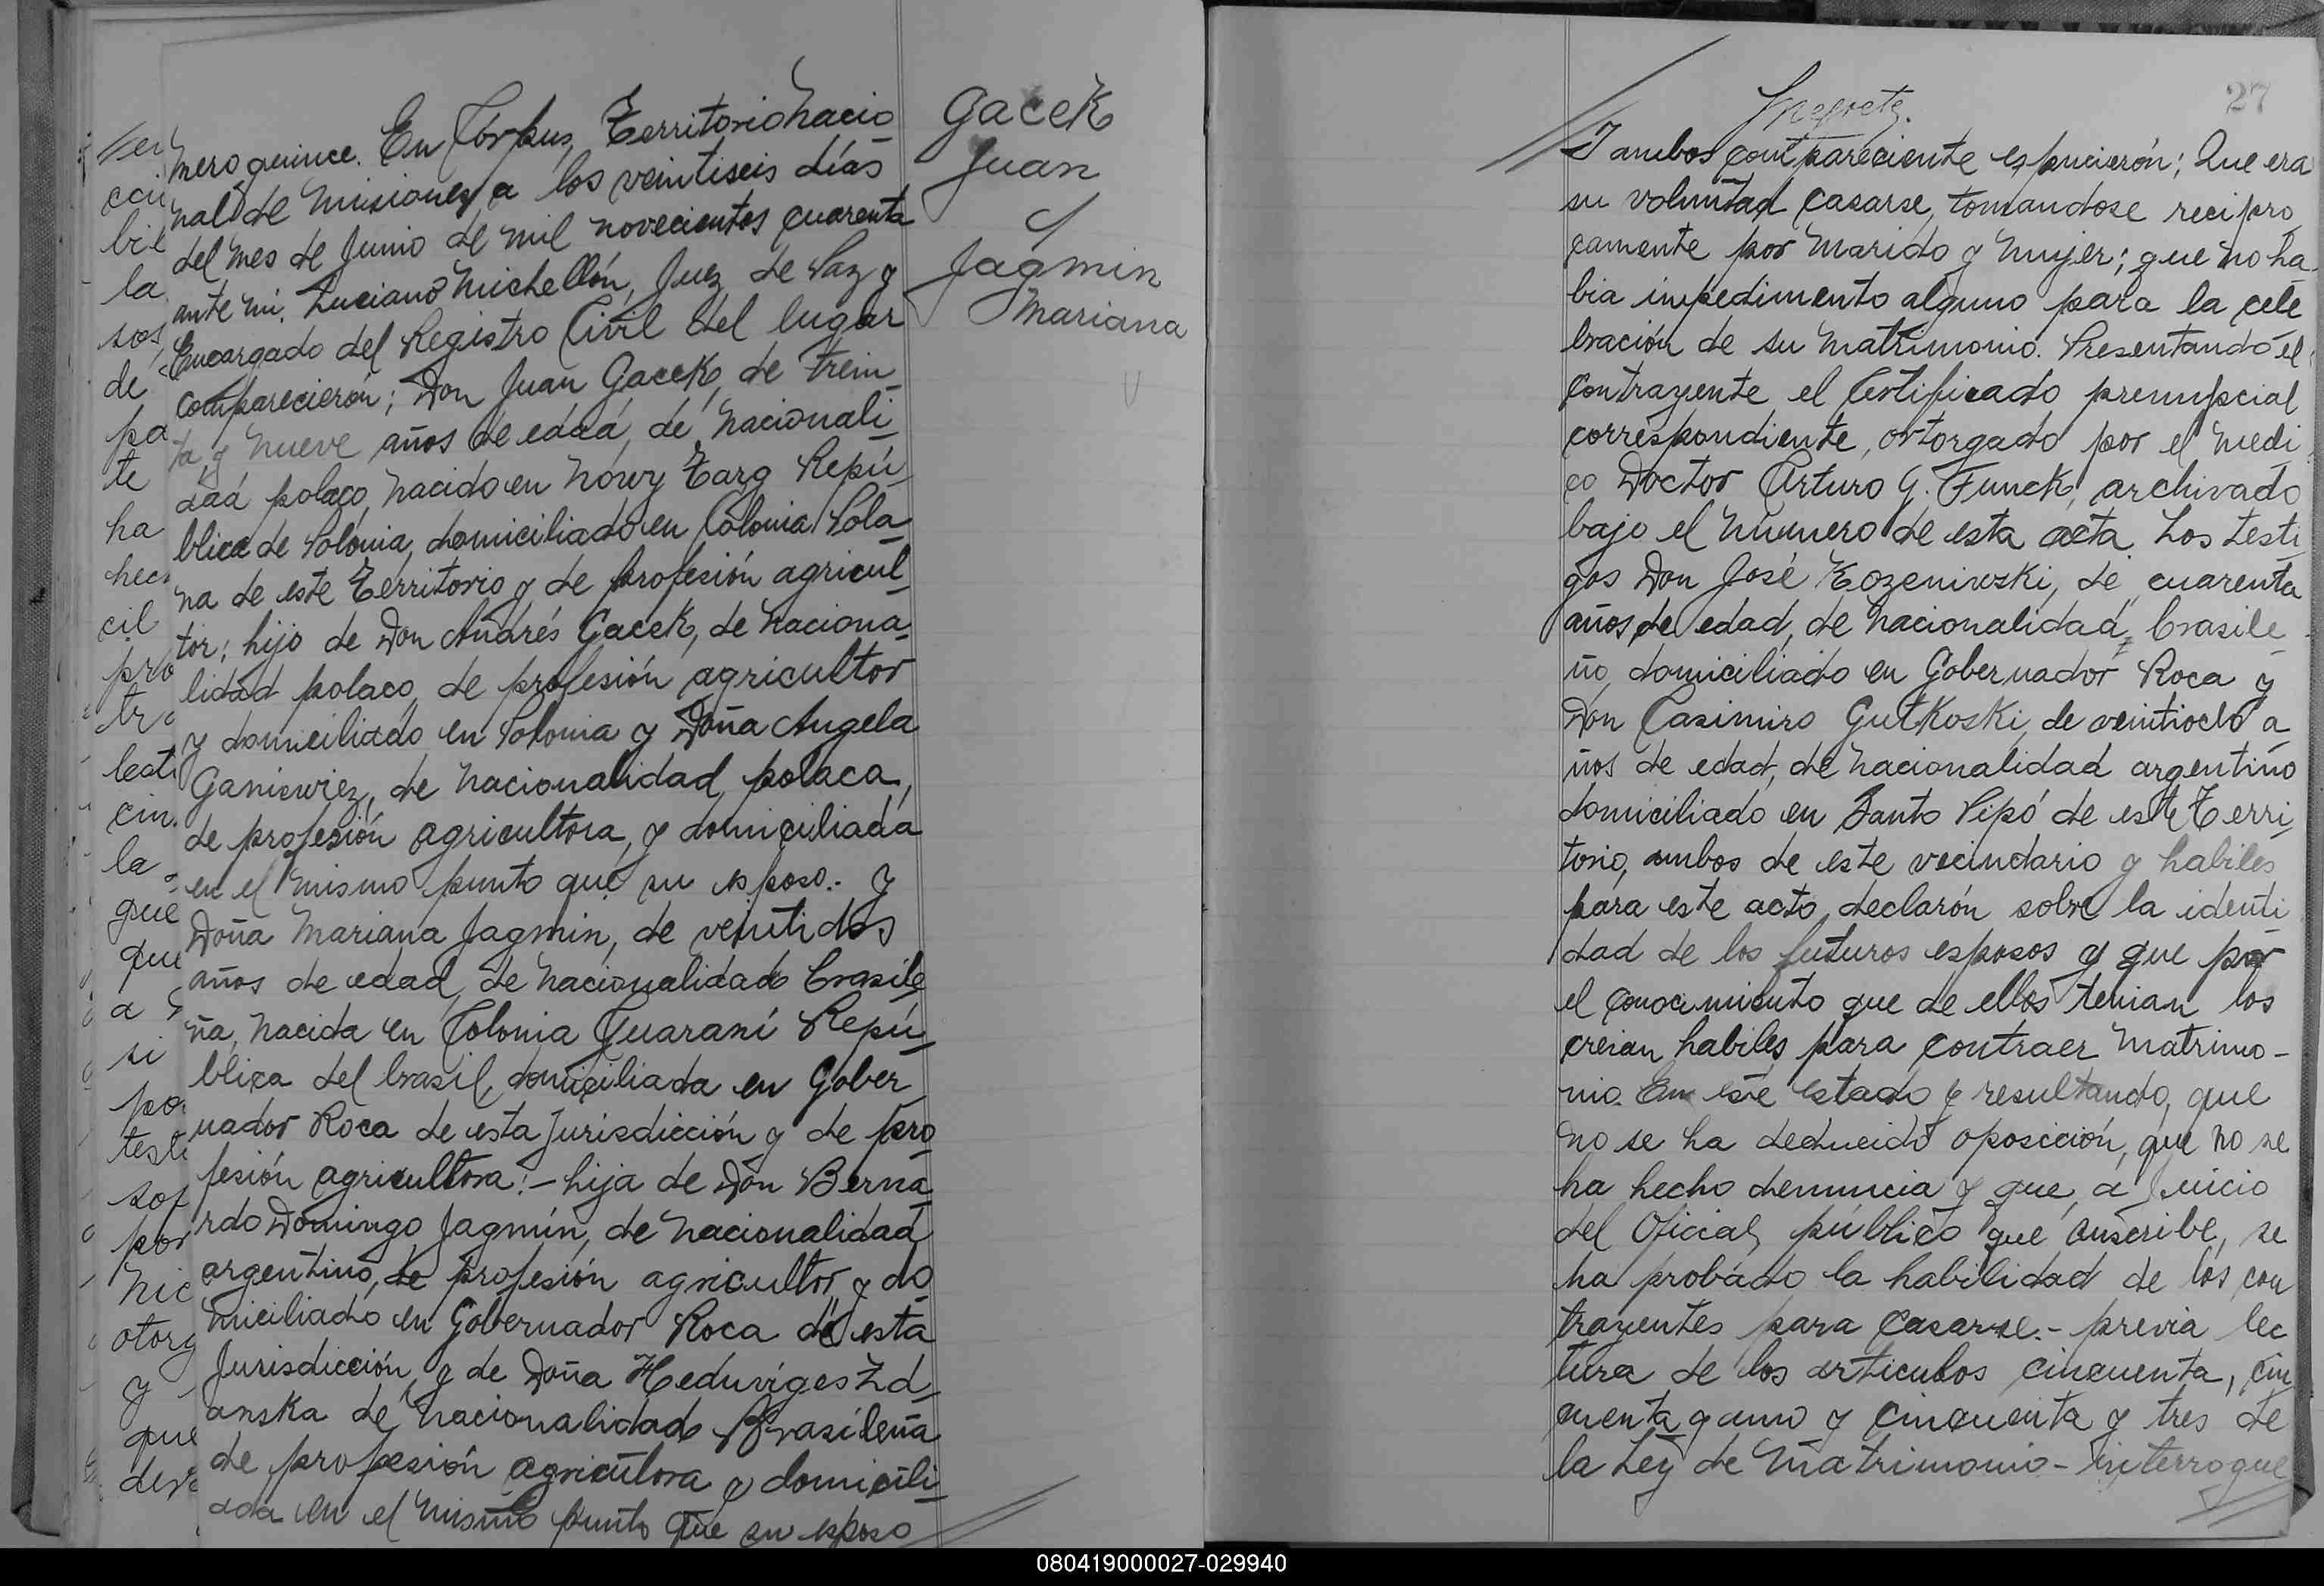 mero quince. En Córpus, Territorio nacio
nal de Misiones, a los veintiseis días
del mes de Junio de mil novecientos cuarenta
ante mi. Luciano Michellón, Juez de Paz y
Encargado del Registro Civil del lugar
comparecierón; Don Juan Gacek, de trein_
ta y nueve años de edad, de nacionali_
dad polaco, nacido en Nowy Targ Repú_
blica de Polonia, domiciliado en Colonia Pola_
na de este Territorio y de profesión agricul_
tor; hijo de Don Andrés Gacek, de naciona_
lidad polaco, de profesión agricultor
y domiciliado en Polonia y Doña Angela
Ganiewiez, de nacionalidad polaca,
de profesión agricultora, y domiciliada
en el mismo punto que su esposo.- y
Doña Mariana Jagmin, de veintidos
años de edad, de nacionalidad brasile_
ña, nacida en Colonia Guaraní Repú_
blica del brasil, domiciliada en Gober_
nador Roca de esta Jurisdicción y de pro_
fesión agricultora:- hija de Don Berna_
rdo Domingo Jagmín, de nacionalidad
argentino, de profesión agricultor, y do_
miciliado en Gobernador Roca de esta
Jurisdicción, y de Doña Heduviges Zd_
anska de nacionalidad Brasileña
de profesión agricultora y domicili_
ada en el mismo punto que su esposo
Gacek
Juan
y
Jagmin
Mariana
cci
bil
la
sos
de
pa
te
ha
hec
cil
pro
tr
lecti
cin
la
que
que
a
si
po
testi
sof
por
nic
otorg
y
que
27
Y ambos compareciente espucierón; Que era
su voluntad casarse, tomandose recipro_
camente por Marido y Mujer; que no ha_
bia impedimento alguno para la cele_
bración de su matrimonio. Presentando el
contrayente el Certificado prenupcial
correspondiente, ortorgado por el Medi_
co Doctor Arturo G. Funck, archivado
bajo el número de esta acta. Los testi_
gos Don José Kozeniwski, de cuarenta
años de edad, de nacionalidad, brasile_
ño, domiciliado en Gobernador Roca y
Don Casimiro Gutkoski, de veintiocho a_
ños de edad, de nacionalidad argentino
domiciliado en Santo Pipó de este Terri_
torio, ambos de este vecindario y habiles
para este acto, declarón sobre la identi_
dad de los futuros esposos y que por
el conocimiento que de ellos tenian los
creian habiles para contraer Matrimo-
nio. En este estado y resultando, que
no se ha deducido oposición, que no se
ha hecho denuncia y que, a Juicio
del Oficial público que suscribe, se
ha probado la habilidad de los con
trayentes para casarse.- previa lec
tura de los articulos cincuenta, cin
cuenta y uno y cincuenta y tres de
la Ley de Matrimonio - interrogue
080419000027-029940